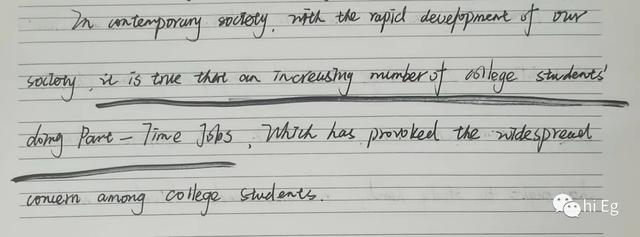 In contemporary society, with the rapid development of our
society, it is true that an increasing number of college students'
doing Part-Time Jobs, Which has provoked the widespread
concern among college students.
hi Eg